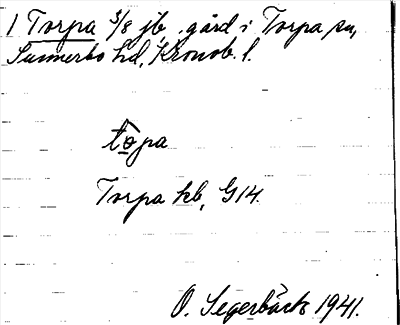 1 Torpa 3/8 jb. gård i Torpa sn,
Sunnerbo hd, Kronob. l.
tɷpa
Torpa kb, G 14.
O. Segerbäck 1941.